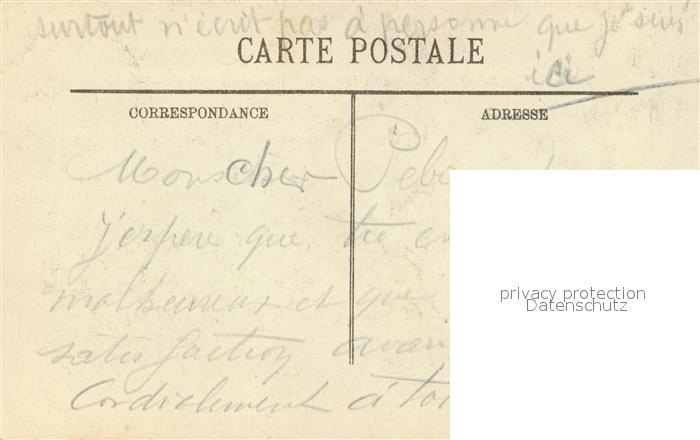 surtout n'ecrit pas à personne que je suis
ici
CARTE POSTALE
CORRESPONDANCE
ADRESSE
Mons cher
j'espere que tu
malheureux et que
satisfaction avan
Cordialement à toi
privacy protection
Datenschutz